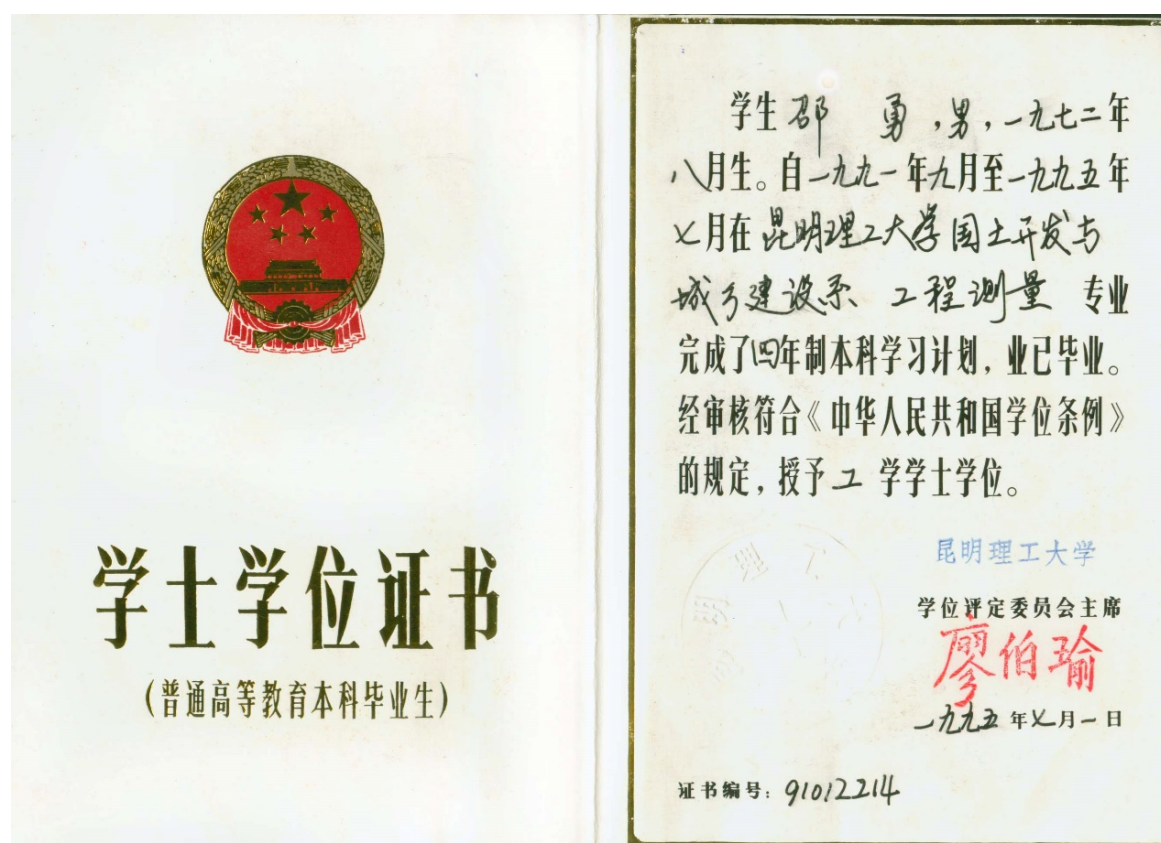 学士学位证书
(普通高等教育本科毕业生)
学生邵 勇,男,一九七二年
八月生。自一九九一年九月至一九九五年
七月在昆明理工大学国土开发与
城乡建设系 工程测量 专业
完成了四年制本科学习计划,业已毕业。
经审核符合《中华人民共和国学位条例》
的规定,授予工 学学士学位。
昆明理工大学
学位评定委员会主席
廖伯瑜
一九九五年七月一日
证书编号:91012214